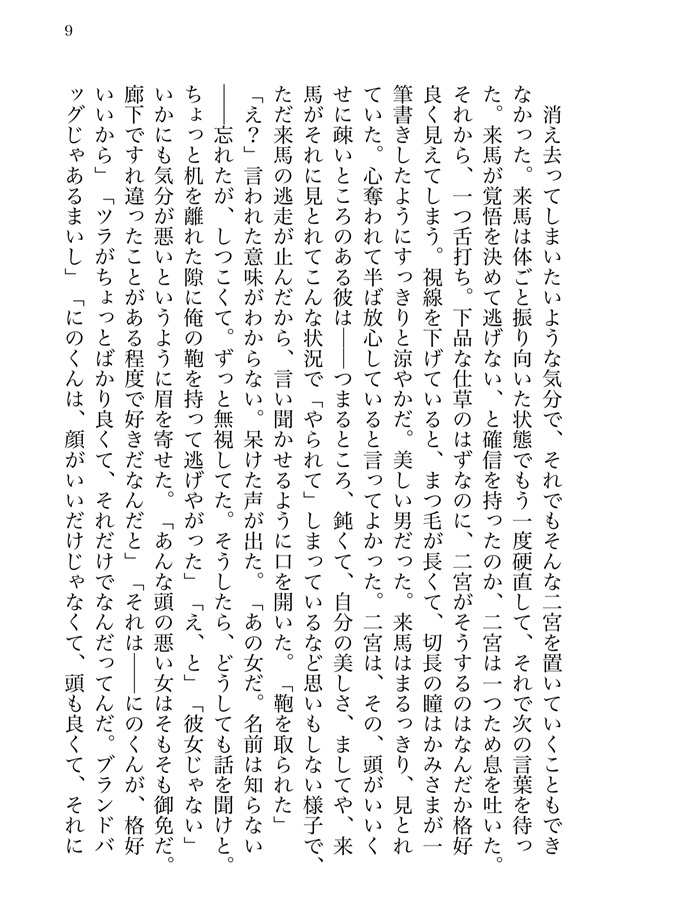 9
消え去ってしまいたいような気分で、それでもそんな二宮を置いていくこともでき
なかった。来馬は体ごと振り向いた状態でもう一度硬直して、それで次の言葉を待っ
た。来馬が覚悟を決めて逃げない、と確信を持ったのか、二宮は一つため息を吐いた。
それから、一つ舌打ち。下品な仕草のはずなのに、二宮がそうするのはなんだか格好
良く見えてしまう。視線を下げていると、まつ毛が長くて、切長の瞳はかみさまが一
筆書きしたようにすっきりと涼やかだ。美しい男だった。来馬はまるっきり、見とれ
ていた。心奪われて半ば放心していると言ってよかった。二宮は、その、頭がいいく
せに疎いところのある彼は――つまるところ、鈍くて、自分の美しさ、ましてや、来
馬がそれに見とれてこんな状況で「やられて」しまっているなど思いもしない様子で、
ただ来馬の逃走が止んだから、言い聞かせるように口を開いた。「鞄を取られた」
「え？」言われた意味がわからない。呆けた声が出た。「あの女だ。名前は知らない
――忘れたが、しつこくて。ずっと無視してた。そうしたら、どうしても話を聞けと。
ちょっと机を離れた隙に俺の鞄を持って逃げやがった」「え、と」「彼女じゃない」
いかにも気分が悪いというように眉を寄せた。「あんな頭の悪い女はそもそも御免だ。
廊下ですれ違ったことがある程度で好きだなんだと」「それは――にのくんが、格好
いいから」「ツラがちょっとばかり良くて、それだけでなんだってんだ。ブランドバ
ッグじゃあるまいし」「にのくんは、顔がいいだけじゃなくて、頭も良くて、それに